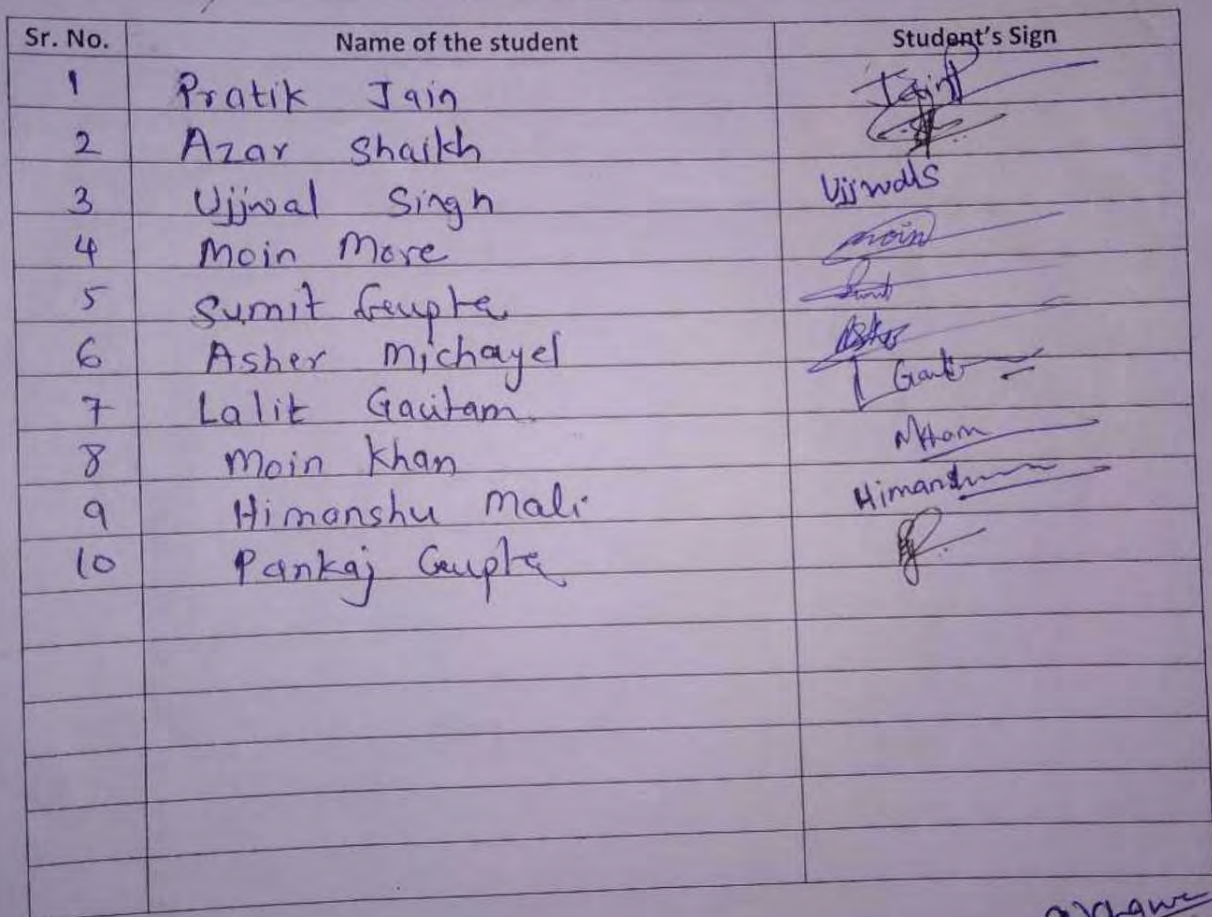 Sr. No. Name of the student Student's Sign
1 Pratik Jain Jain
2 Azar Shaikh
3 Ujjwal Singh UjjwalS
4 Moin More moin
5 Sumit Gupta
6 Asher Michayel Asher
7 Lalit Gautam
8 Moin Khan
9 Himanshu Mali Himanshu
10 Pankaj Gupta